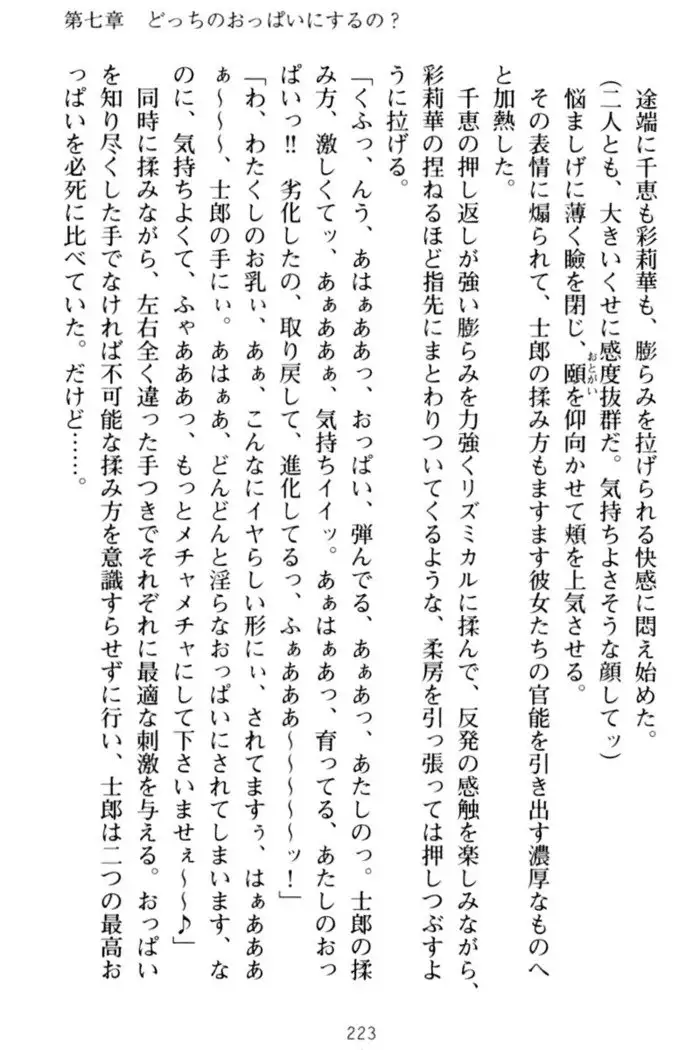 第七章　どっちのおっぱいにするの？
　途端に千恵も彩莉華も、膨らみを拉げられる快感に悶え始めた。
（二人とも、大きいくせに感度抜群だ。気持ちよさそうな顔してッ）
　悩ましげに薄く瞼を閉じ、頤を仰向かせて頬を上気させる。
おとがい
　その表情に煽られて、士郎の揉み方もますます彼女たちの官能を引き出す濃厚なものへ
と加熱した。
　千恵の押し返しが強い膨らみを力強くリズミカルに揉んで、反発の感触を楽しみながら、
彩莉華の捏ねるほど指先にまとわりついてくるような、柔房を引っ張っては押しつぶすよ
うに拉げる。
「くふっ、んう、あはぁああっ、おっぱい、弾んでる、あぁあっ、あたしのっ。士郎の揉
み方、激しくてッ、あぁああぁ、気持ちイイッ。あぁはぁあっ、育ってる、あたしのおっ
ぱいっ‼　劣化したの、取り戻して、進化してるっ、ふぁあああ～～～～～ッ！」
「わ、わたくしのお乳ぃ、あぁ、こんなにイヤらしい形にぃ、されてますぅ、はぁあああ
ぁ～～～、士郎の手にぃ。あはぁあ、どんどんと淫らなおっぱいにされてしまいます、な
のに、気持ちよくて、ふゃあああっ、もっとメチャメチャにして下さいませぇ～～♪」
　同時に揉みながら、左右全く違った手つきでそれぞれに最適な刺激を与える。おっぱい
を知り尽くした手でなければ不可能な揉み方を意識すらせずに行い、士郎は二つの最高お
っぱいを必死に比べていた。だけど……。
223